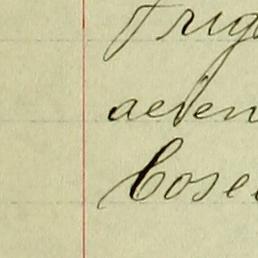 Frig
aeven
Cose